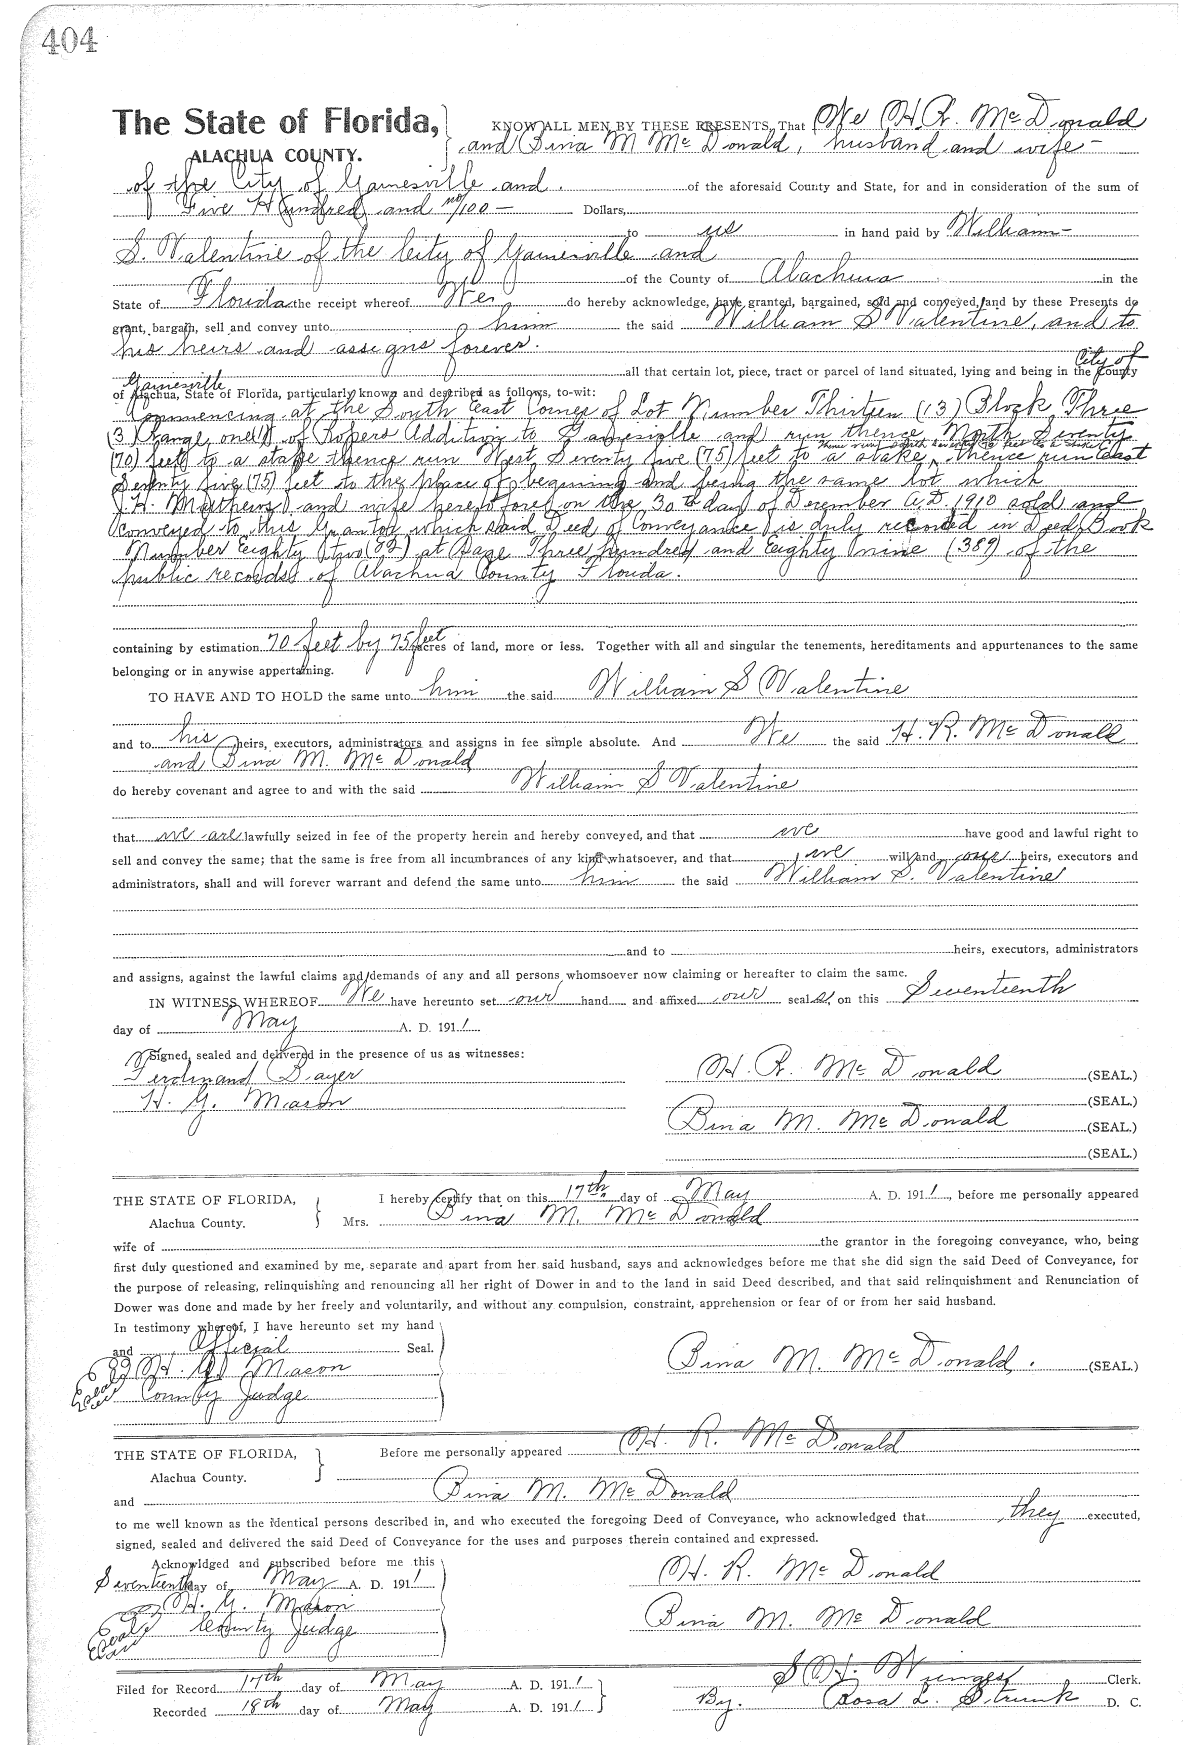 404
The State of Florida, KNOW ALL MEN BY THESE PRESENTS, That We H. R. McDonald
ALACHUA COUNTY. and Bina M McDonald, husband and wife –
of the City of Gainesville and of the aforesaid County and State, for and in consideration of the sum of
Five Hundred and no/100 – Dollars,
to us in hand paid by William –
S. Valentine of the City of Gainesville and
of the County of Alachua in the
State of Florida the receipt whereof We do hereby acknowledge, have granted, bargained, sold and conveyed, and by these Presents do
grant, bargain, sell and convey unto him the said William S Valentine, and to
his heirs and assigns forever.
all that certain lot, piece, tract or parcel of land situated, lying and being in the City of County
of Gainesville Alachua, State of Florida, particularly known and described as follows, to-wit:
Commencing at the South East Corner of Lot Number Thirteen (13) Block Three
(3) Range one (1) of Ropers Addition to Gainesville and run thence North Seventy
(70) feet to a stake thence run West Seventy five (75) feet to a stake, thence run South seventy 70 feet to a stake thence run East
Seventy five (75) feet to the place of begining and being the same lot which
J. H. Matthews and wife heretofore on the 30th day of December A.D. 1910 sold and
conveyed to this Grantor which said Deed of Conveyance is duly recorded in Deed Book
Number Eighty two (82) at Page Three hundred and Eighty nine (389) of the
public records of Alachua County Florida.
containing by estimation 70 feet by 75 feet acres of land, more or less. Together with all and singular the tenements, hereditaments and appurtenances to the same
belonging or in anywise appertaining.
TO HAVE AND TO HOLD the same unto him the said William S Valentine
and to his heirs, executors, administrators and assigns in fee simple absolute. And We the said H. R. McDonald
and Bina M. McDonald
do hereby covenant and agree to and with the said William S Valentine
that we are lawfully seized in fee of the property herein and hereby conveyed, and that we have good and lawful right to
sell and convey the same; that the same is free from all incumbrances of any kind whatsoever, and that we will and our heirs, executors and
administrators, shall and will forever warrant and defend the same unto him the said William S. Valentine
and to heirs, executors, administrators
and assigns, against the lawful claims and demands of any and all persons whomsoever now claiming or hereafter to claim the same.
IN WITNESS WHEREOF We have hereunto set our hand and affixed our seal s, on this Seventeenth
day of May A. D. 1911
Signed, sealed and delivered in the presence of us as witnesses:
Ferdinand Bayer H. R. McDonald (SEAL.)
H. G. Mason (SEAL.)
Bina M. McDonald (SEAL.)
(SEAL.)
THE STATE OF FLORIDA, I hereby certify that on this 17th day of May A. D. 1911, before me personally appeared
Alachua County. Mrs. Bina M. McDonald
wife of the grantor in the foregoing conveyance, who, being
first duly questioned and examined by me, separate and apart from her said husband, says and acknowledges before me that she did sign the said Deed of Conveyance, for
the purpose of releasing, relinquishing and renouncing all her right of Dower in and to the land in said Deed described, and that said relinquishment and Renunciation of
Dower was done and made by her freely and voluntarily, and without any compulsion, constraint, apprehension or fear of or from her said husband.
In testimony whereof, I have hereunto set my hand
and Official Seal.
H. G. Mason Bina M. McDonald. (SEAL.)
Seal County Judge
THE STATE OF FLORIDA, Before me personally appeared H. R. McDonald
Alachua County.
and Bina M. McDonald
to me well known as the identical persons described in, and who executed the foregoing Deed of Conveyance, who acknowledged that they executed,
signed, sealed and delivered the said Deed of Conveyance for the uses and purposes therein contained and expressed.
Acknowldged and subscribed before me this
Seventeenth day of May A. D. 1911 H. R. McDonald
H. G. Mason
Seal County Judge Bina M. McDonald
Filed for Record 17th day of May A. D. 1911 S. H. Wienges Clerk.
Recorded 18th day of May A. D. 1911 By. Rosa L. Strunk D. C.